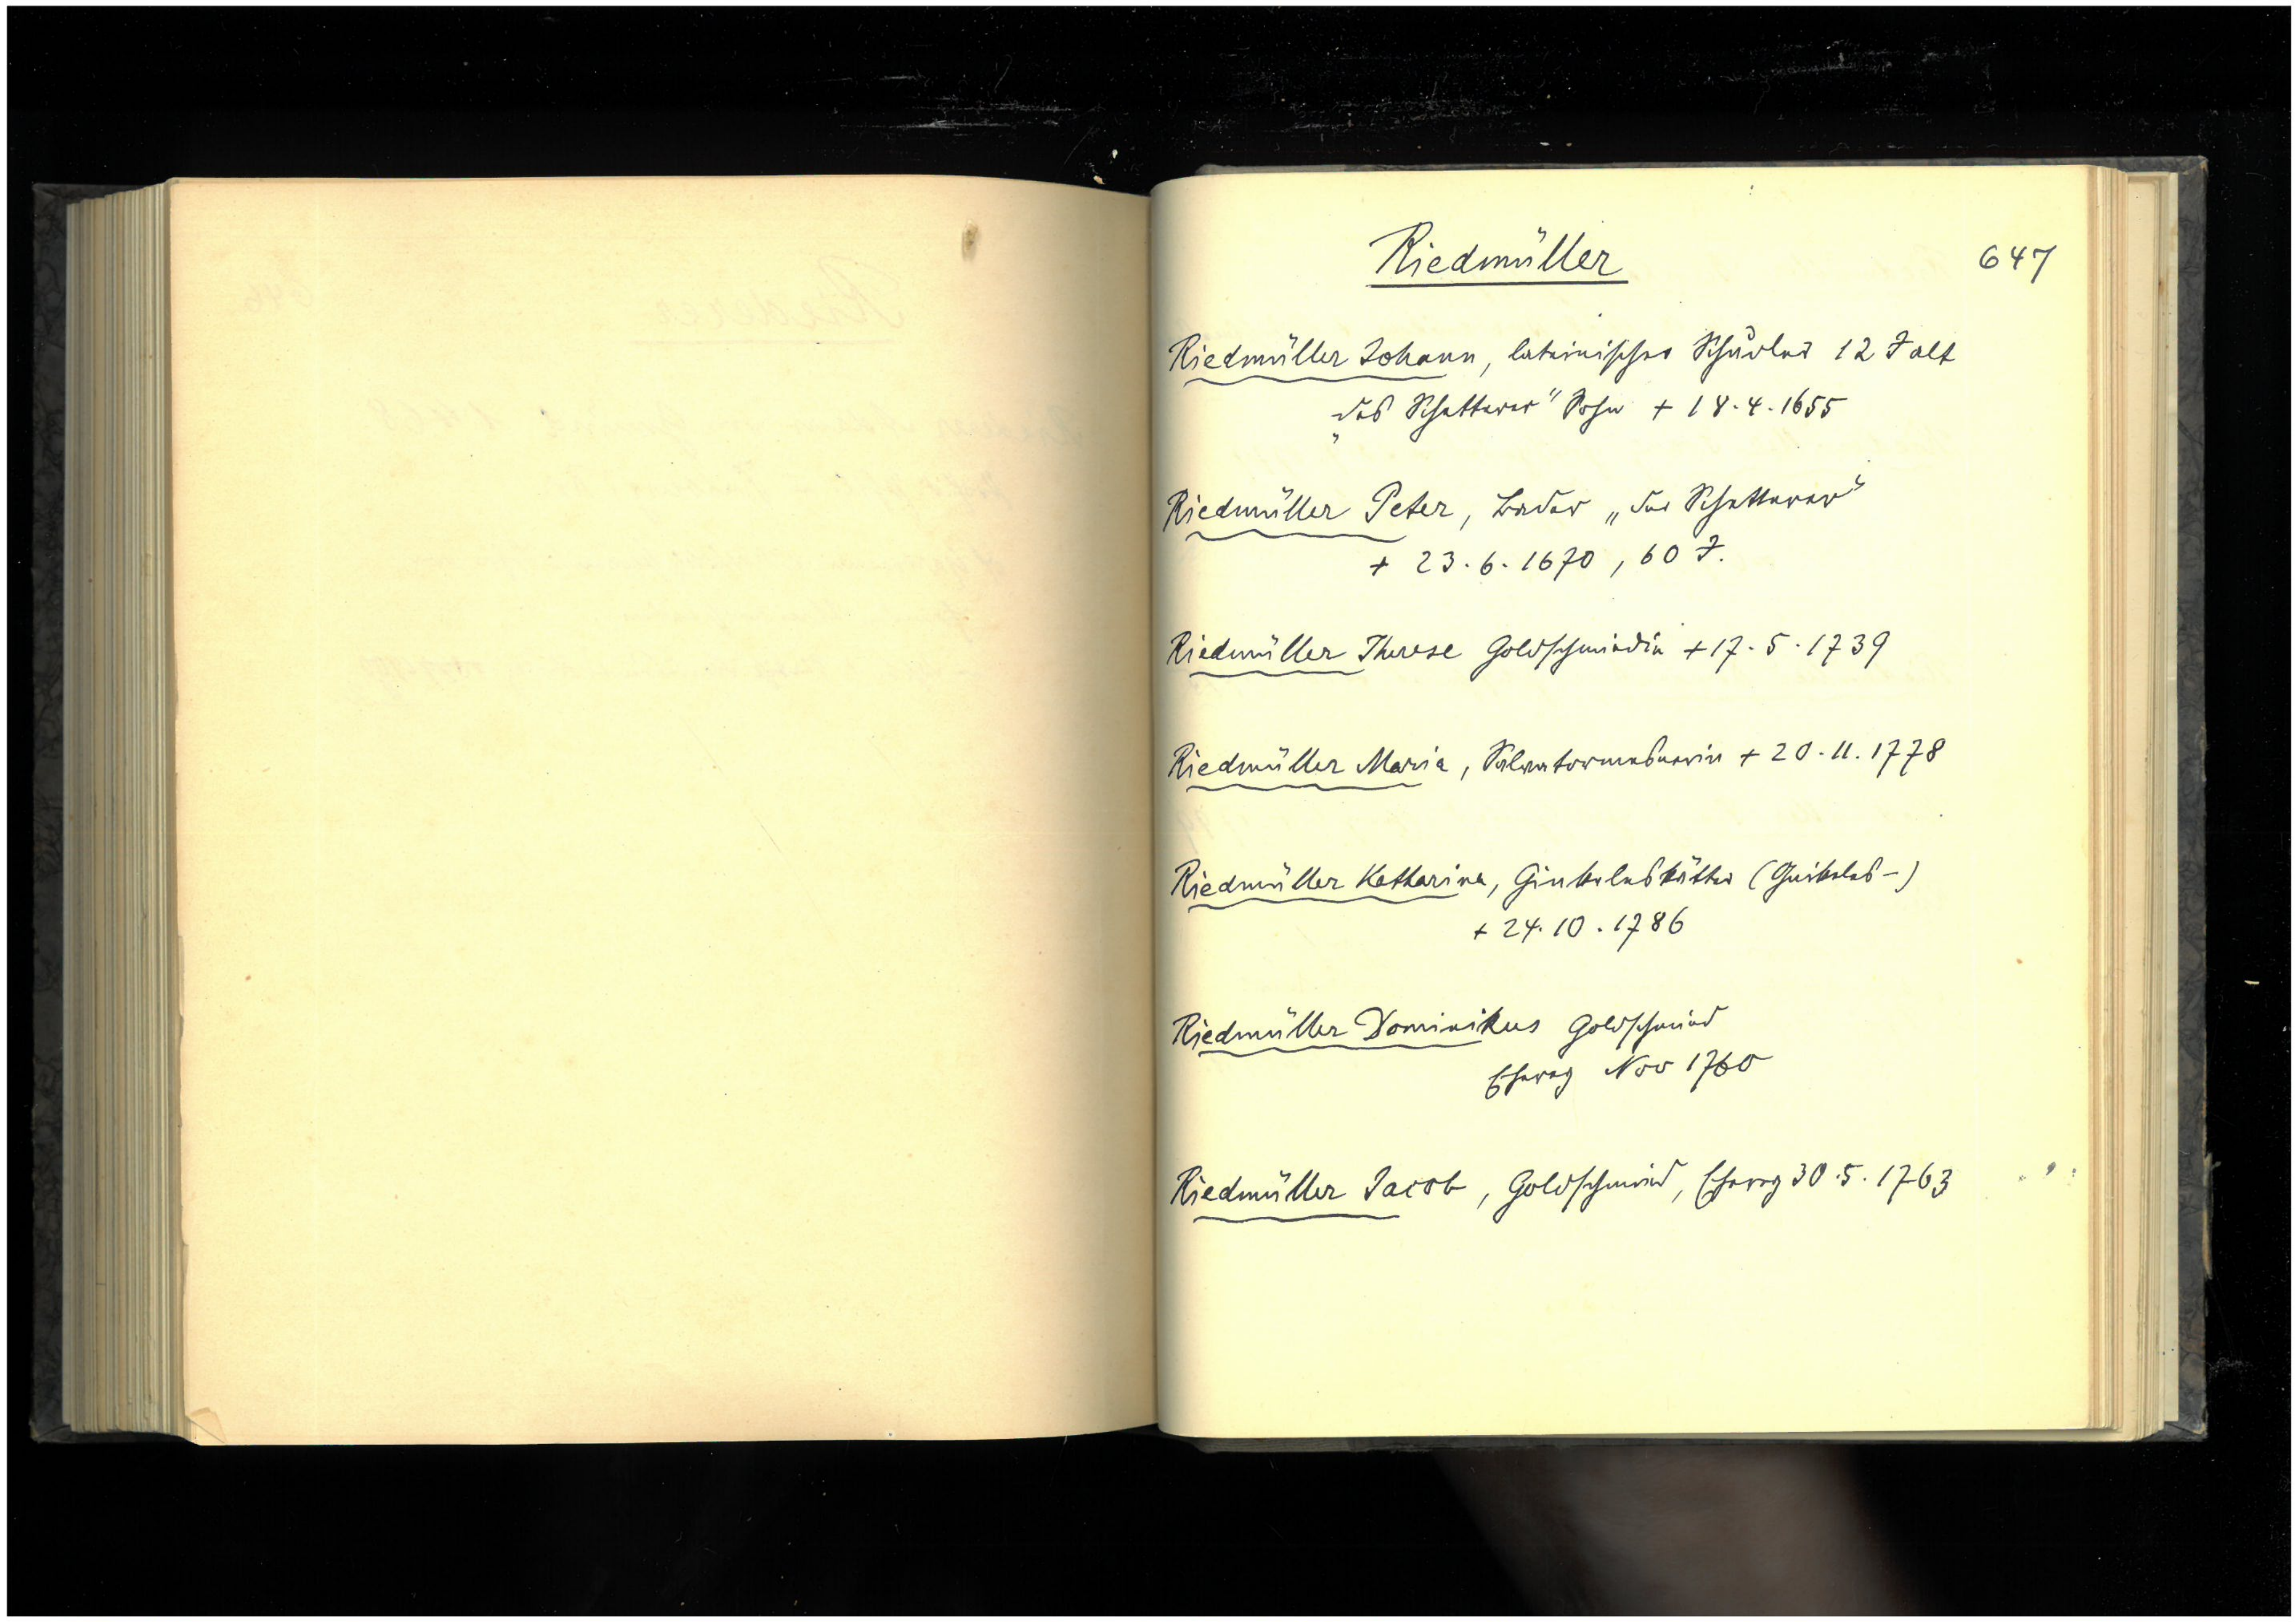 Riedmüller
647
Riedmüller Johann, lateinischer Schüler 12 J alt
„des Schatterer" Sohn + 18.4.1655
Riedmüller Peter, Bader „der Schatterer"
+ 23.6.1670, 60 J.
Riedmüller Therese Goldschmiedin + 17.5.1739
Riedmüller Maria, Salvatormesnerin + 20.11.1778
Riedmüller Katharina,
+ 24.10.1786
Riedmüller Dominikus Goldschmied
Ehevertrag Nov 1760
Riedmüller Jacob, Goldschmied, 30.5.1763